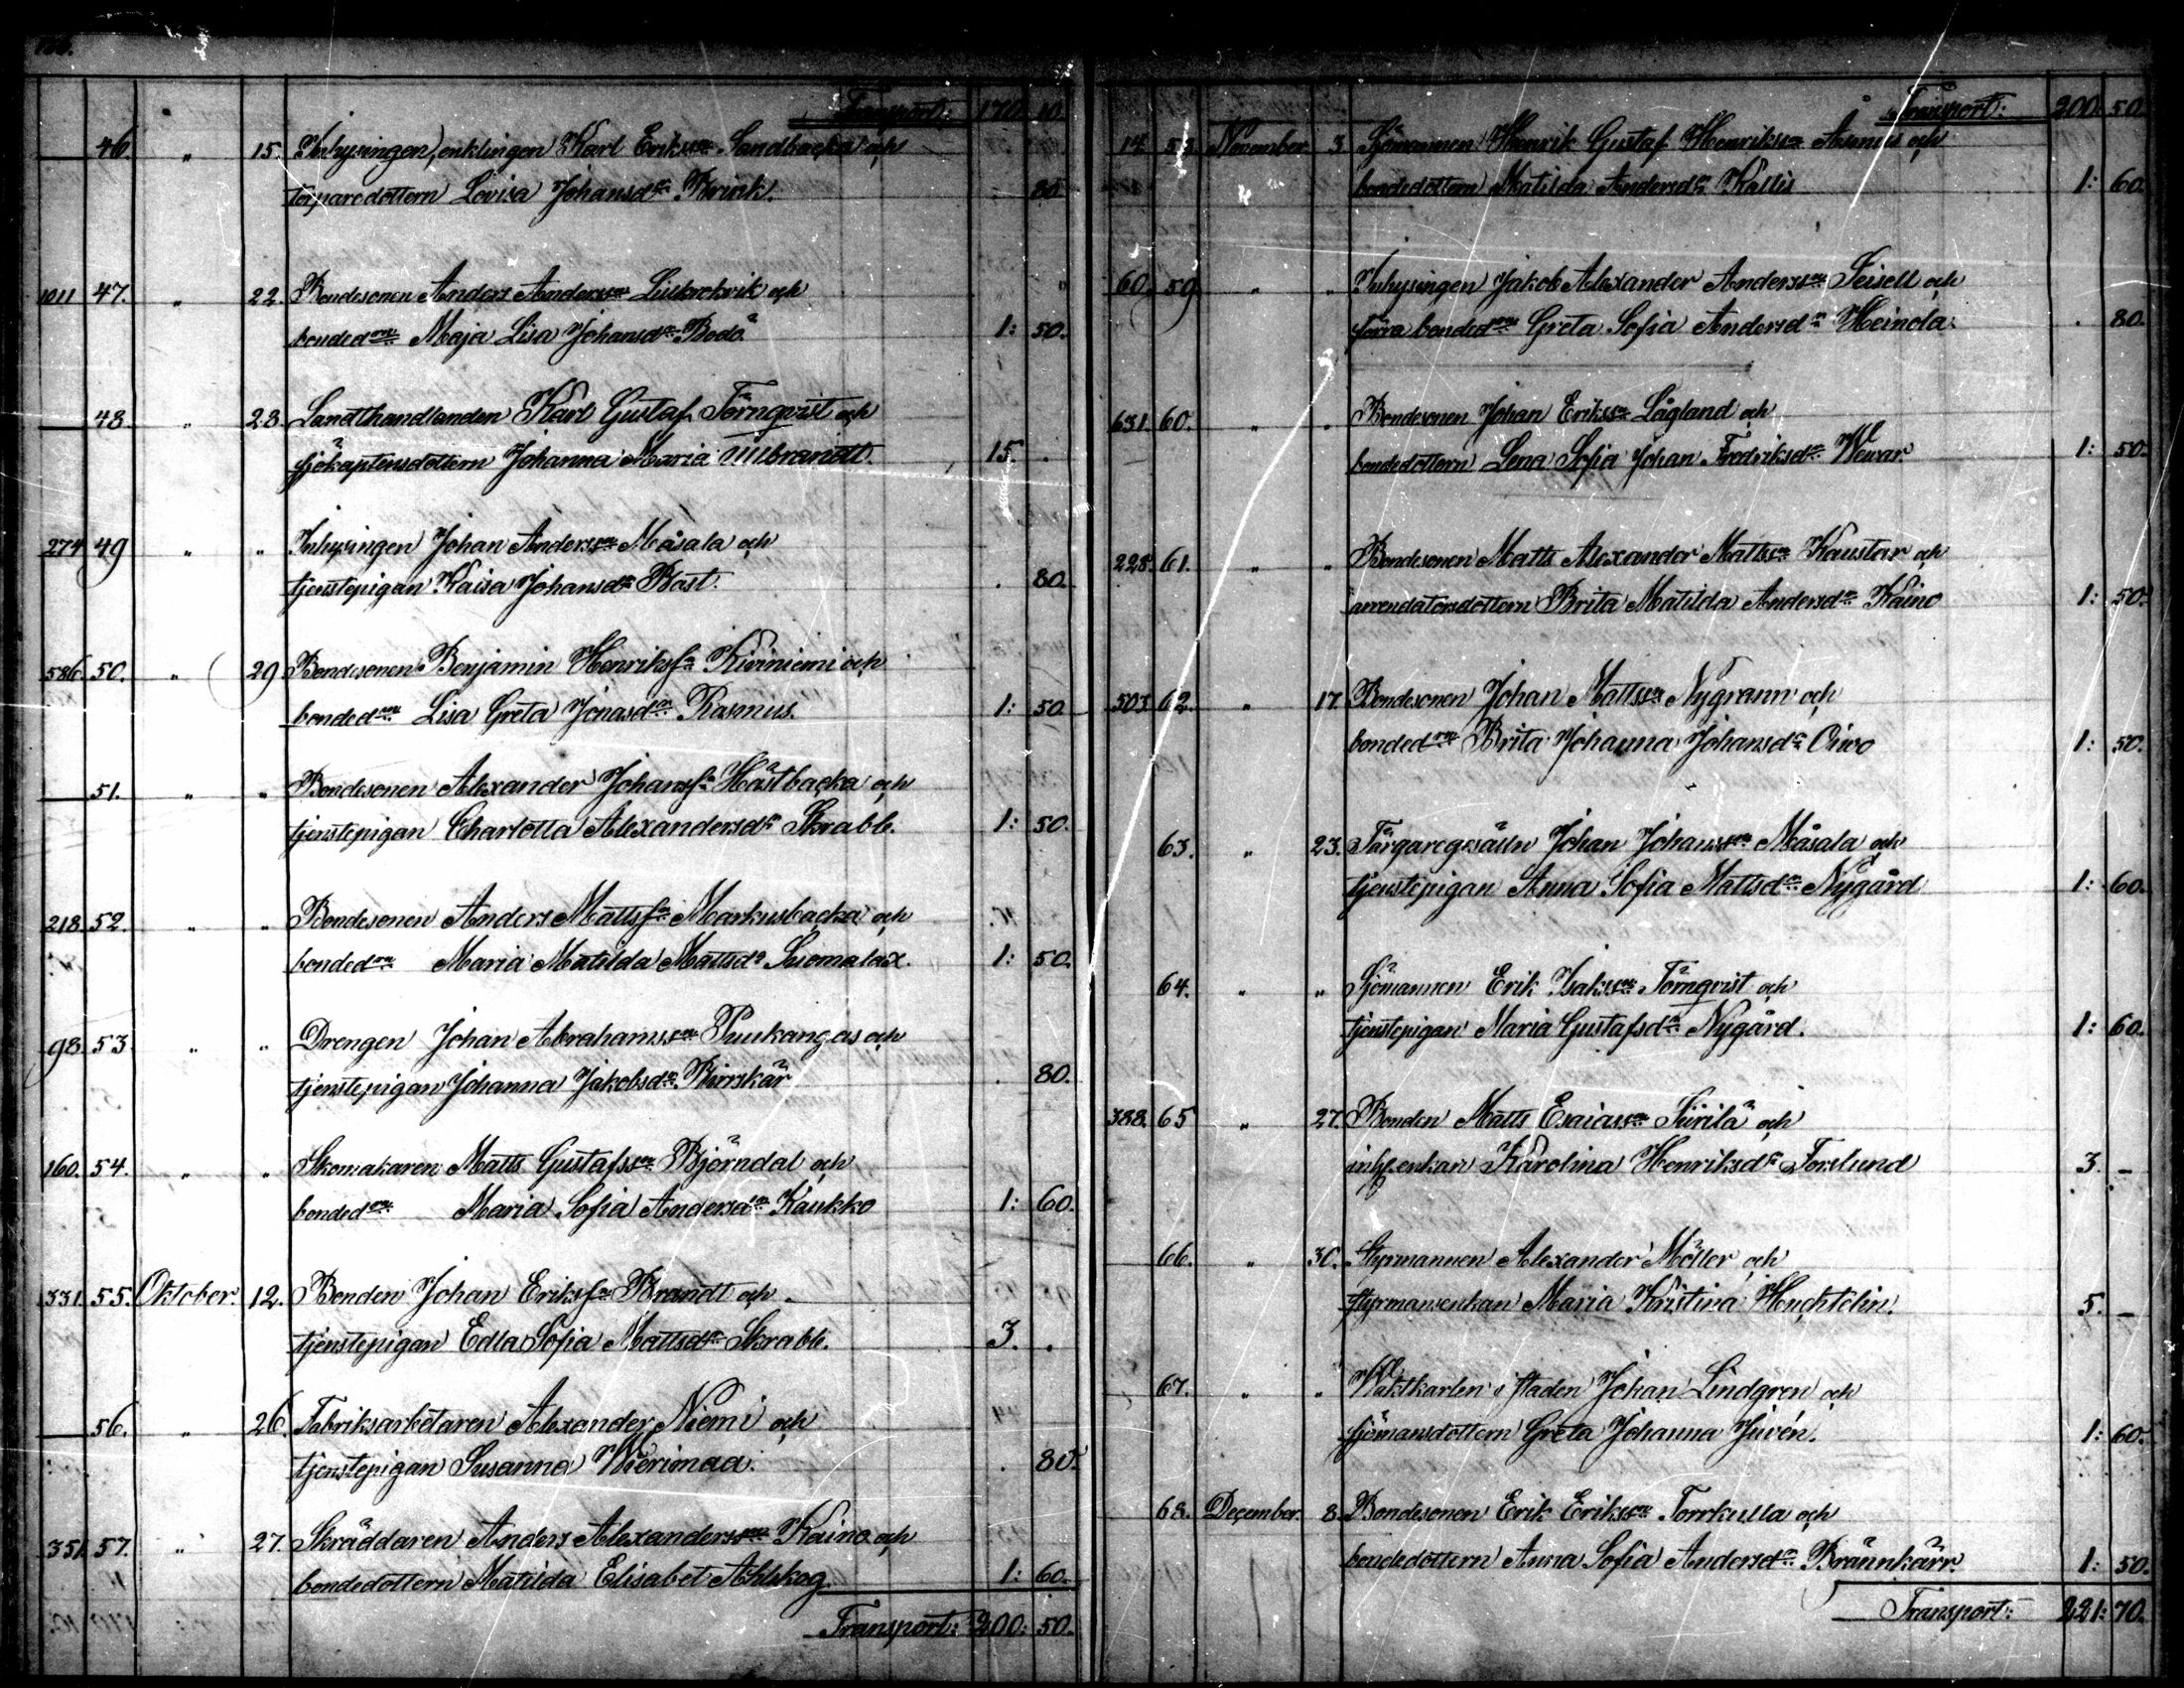 Transport: 170. 10.
46. " 15. Inhysingen, enklingen Karl Eriksson Sandbacka och
torparedottern Lovisa Johansdr Brink. . 80
1011 47. " 22. Bondesonen Anders Andersson och
bondedrn Maja Lisa Johansdr Bodö. 1: 50.
48. " 23. Landthandlanden Karl Gustaf Törnqvist och
sjökaptensdottern Johanna Maria Millbrandtt. 15. .
274 49 " " Inhysingen Johan Andersson Måsala och
tjenstepigan Kaisa Johansdr Bast. . 80.
586. 50. " 29 Bondesonen Benjamin Henriksson Kiviniemi och
bondedrn Lisa Greta Jonasdr Rasmus. 1: 50
51. " " Bondesonen Alexander Johansson Hästbacka och
tjenstepigan Charlotta Alexandersdr Skrabb. 1: 50.
218. 52. " " Bondesonen Anders Mattsson Markusbacka och
bondedrn Maria Matilda Mattsdr Suomalax. 1: 50.
98 53 " " Drengen Johan Abrahamsson Puukangas och
tjenstepigan Johanna Jakobsdr Kirrskär . 80.
160. 54. " " Skomakaren Matts Gustafsson Björndal och
bondedrn Maria Sofia Andersdr Kaukko 1: 60.
331. 55. Oktober. 12. Bonden Johan Eriksson Brandt och
tjenstepigan Edla Sofia Mattsdr Skrabb. 3. .
56. " 26. Fabriksarbetaren Alexander Niemi och
tjenstepigan Susanna Wierimaa. . 80.
351. 57. " 27. Skräddaren Anders Alexandersson Kaino och
bondedottern Matilda Elisabet Ahlskog. 1: 60.
Transport: 200: 50.
Transport: 200. 50
14. 58. November. 3. Sjömannen Henrik Gustaf Henriksson Åsnäs och
bondedottern Matilda Andersdr Kallis 1: 60.
60. 59 " " Inhysingen Jakob Alexander Andersson Seisell och
förra bondedrn Greta Sofia Andersdr Heinola. . 80.
631. 60. " " Bondesonen Johan Eriksson Lågland och
bondedottern Lena Sofia Johan Fredriksdr Wewar. 1: 50.
228. 61. " " Bondesonen Matts Alexander Mattsson Kaustar och
arrendatorsdottern Brita Matilda Andersdr Kaino 1: 50.
503. 62. " 17. Bondesonen Johan Mattsson Nygrann och
bondedrn Brita Johanna Johansdr Oiwo 1: 50.
63. " 23. Färgaregesälln Johan Johansson Måsala och
tjenstepigan Anna Sofia Mattsdr Nygård 1: 60.
64. " " Sjömannen Erik Isaksson Törnqvist och
tjenstepigan Maria Gustafsdr Nygård. 1: 60.
388. 65 " 27. Bonden Matts Esaiasson Siirilä och
inhysenkan Karolina Henriksdr Forslund 3. –
66. " 30. Styrmannen Alexander Möller och
styrmansenkan Maria Kristina Huchtelin. 5. –
67. " " Waktkarlen i staden Johan Lindgren och
sjömansdottern Greta Johanna Juvén. 1: 60.
68. December. 8. Bondesonen Erik Eriksson Torrkulla och
bondedottern Anna Sofia Andersdr Brännkärr. 1: 50.
Transport: 221: 70.